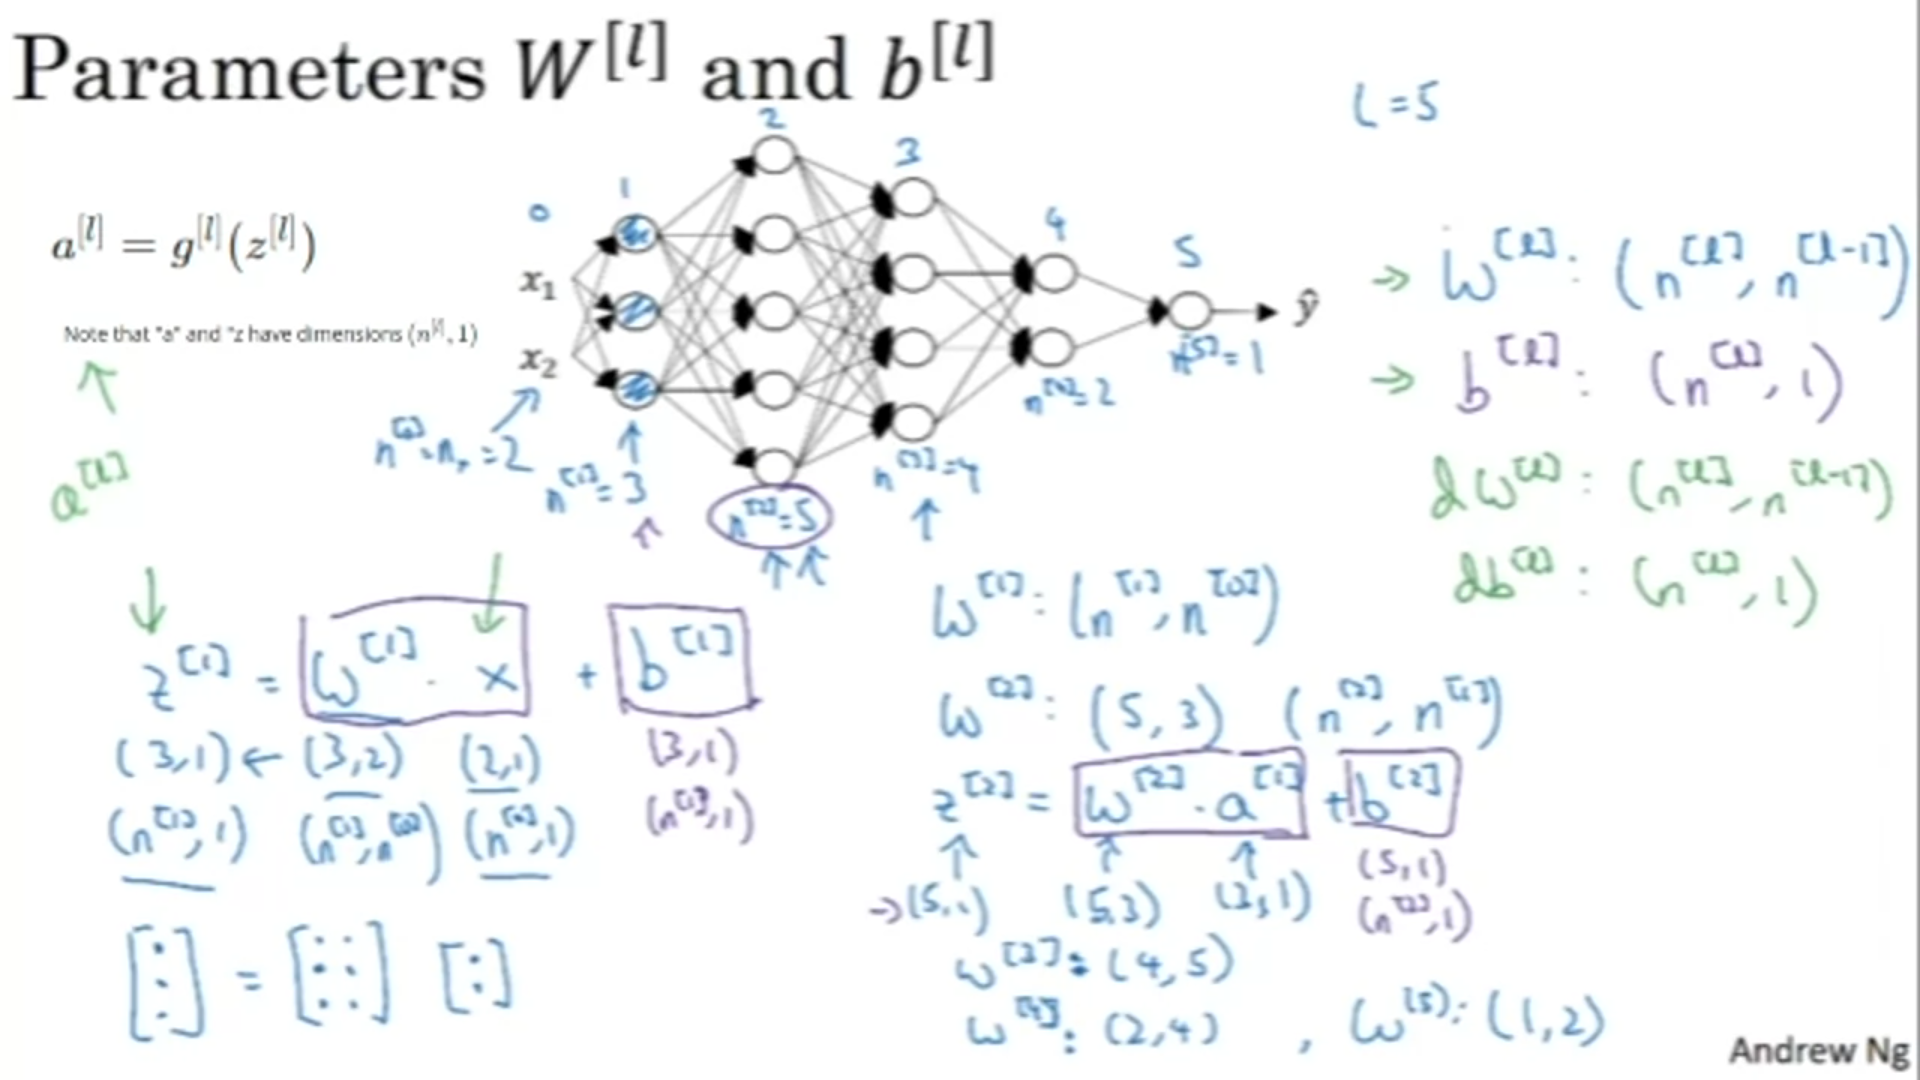 Parameters W^[l] and b^[l]
L = 5
a^[l] = g^[l](z^[l])
Note that "a" and "z have dimensions (n^[l], 1)
a^[l]
0 1 2 3 4 5
x₁
x₂
ŷ
n^[0] = nₓ = 2
n^[1] = 3
n^[2] = 5
n^[3] = 4
n^[4] = 2
n^[5] = 1
→ W^[l] : (n^[l], n^[l-1])
→ b^[l] : (n^[l], 1)
dW^[l] : (n^[l], n^[l-1])
db^[l] : (n^[l], 1)
z^[1] = W^[1] · x + b^[1]
(3,1) ← (3,2) (2,1) (3,1)
(n^[1], 1) (n^[1], n^[0]) (n^[0], 1) (n^[1], 1)
[⋮] = [: : :] [:]
W^[1] : (n^[1], n^[0])
W^[2] : (5,3) (n^[2], n^[1])
z^[2] = W^[2] · a^[1] + b^[2]
→ (5,1) (5,3) (3,1) (5,1)
(n^[2], 1)
W^[3] : (4,5)
W^[4] : (2,4) , W^[5] : (1,2)
Andrew Ng